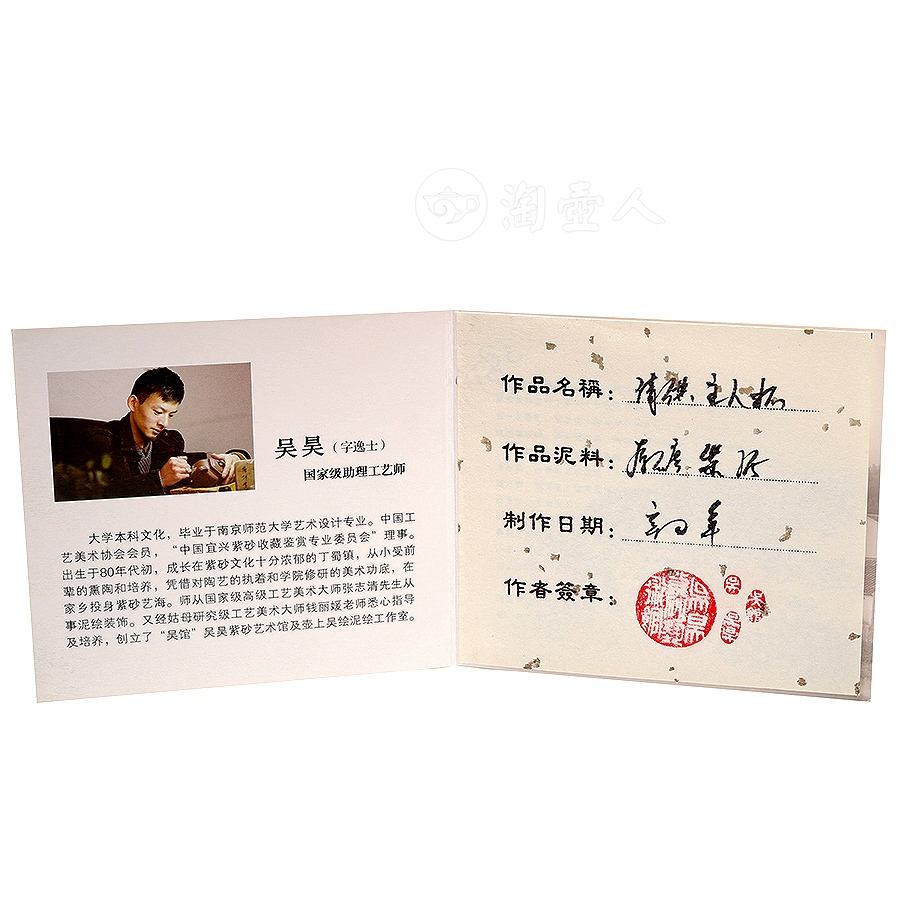 淘壶人
吴昊（字逸士）
国家级助理工艺师
大学本科文化，毕业于南京师范大学艺术设计专业。中国工
艺美术协会会员，“中国宜兴紫砂收藏鉴赏专业委员会”理事。
出生于80年代初，成长在紫砂文化十分浓郁的丁蜀镇，从小受前
辈的熏陶和培养，凭借对陶艺的执着和学院修研的美术功底，在
家乡投身紫砂艺海。师从国家级高级工艺美术大师张志清先生从
事泥绘装饰。又经姑母研究级工艺美术大师钱丽媛老师悉心指导
及培养，创立了“吴馆”吴昊紫砂艺术馆及壶上吴绘泥绘工作室。
作品名稱：
作品泥料：
制作日期：
作者簽章：